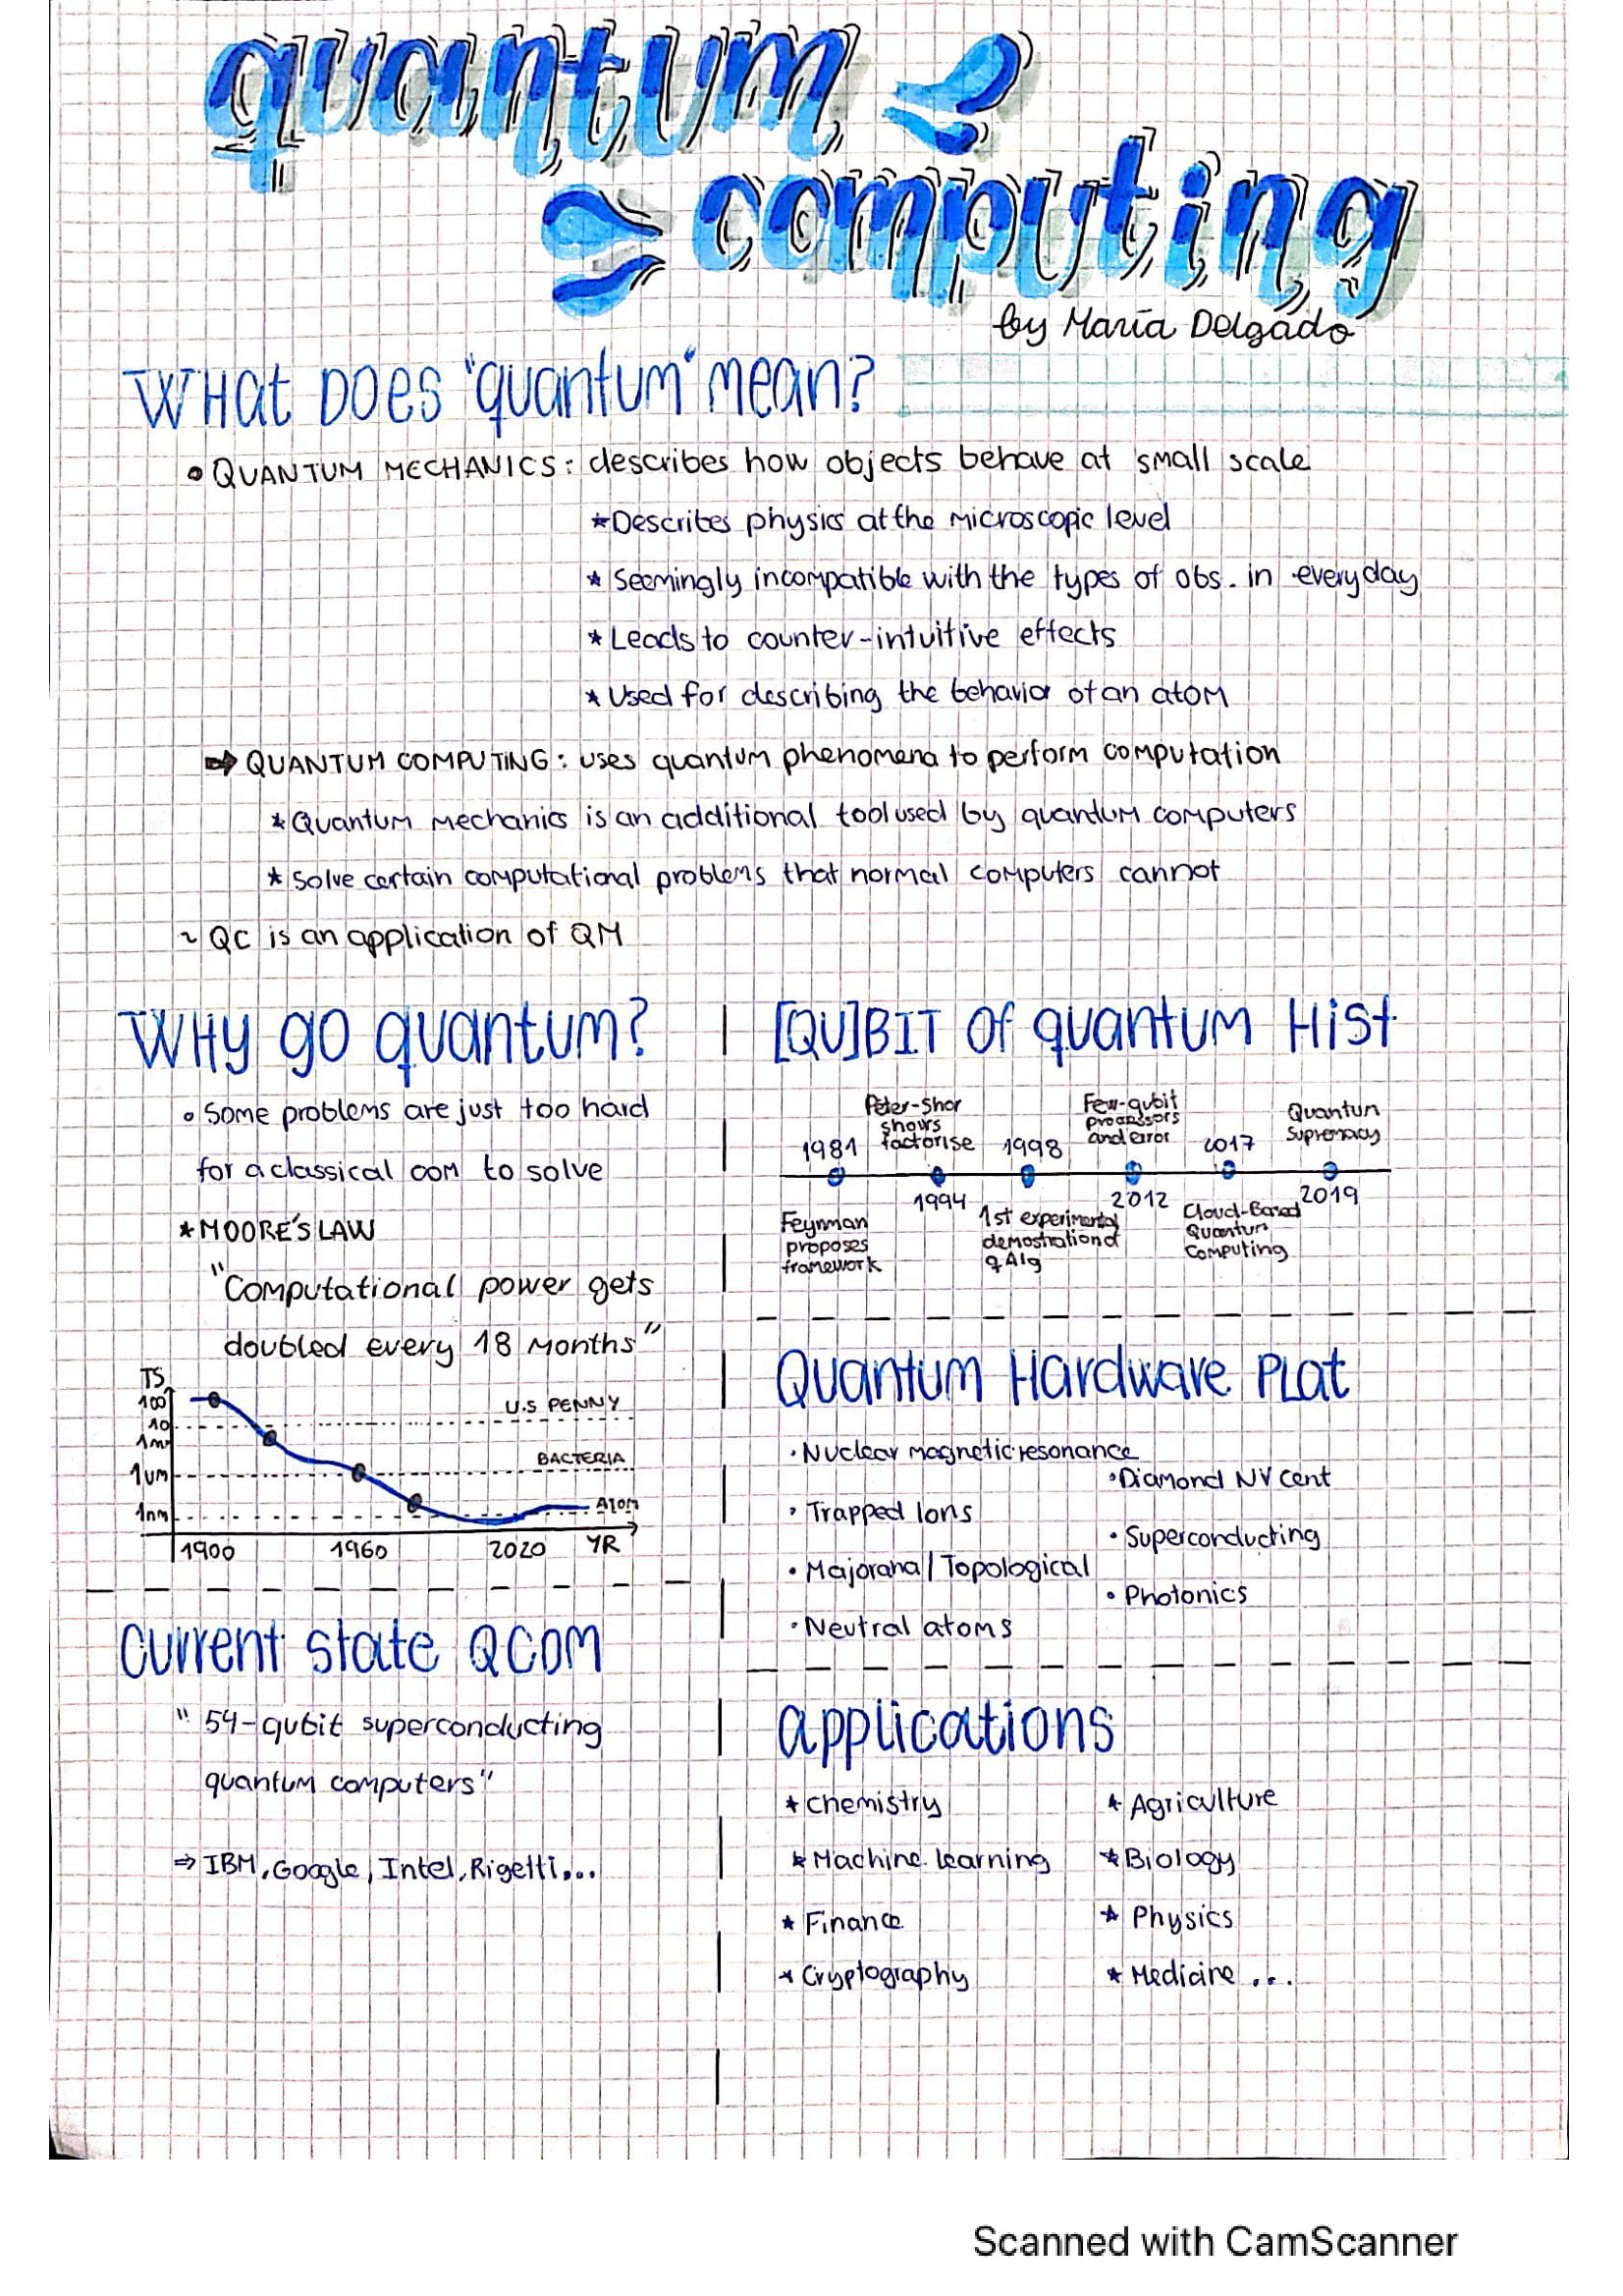 quantum
computing
by María Delgado
WHat DOes "quantum" mean?
• QUANTUM MECHANICS: describes how objects behave at small scale
*Describes physics at the microscopic level
* Seemingly incompatible with the types of obs. in everyday
* Leads to counter-intuitive effects
* Used for describing the behavior of an atom
⇒ QUANTUM COMPUTING: uses quantum phenomena to perform computation
* Quantum mechanics is an additional tool used by quantum computers
* Solve certain computational problems that normal computers cannot
~ QC is an application of QM
WHy go quantum?
• Some problems are just too hard
for a classical com to solve
* MOORE'S LAW
"Computational power gets
doubled every 18 months"
TS
100
10
1m
1um
1nm
U.S PENNY
BACTERIA
Atom
1900 1960 2020 YR
Current state QCOM
"54-qubit superconducting
quantum computers"
⇒ IBM, Google, Intel, Rigetti...
[QU]BIT Of quantum Hist
1981
Feynman
proposes
framework
Peter-Shor
shows
factorise
1994
1998
1st experimental
demostration of
q Alg
Few-qubit
processors
and error
2012
2017
Cloud-Based
Quantum
Computing
Quantum
Supremacy
2019
Quantum Hardware PLat
• Nuclear magnetic resonance
• Diamond NV cent
• Trapped Ions
• Superconducting
• Majorana/Topological
• Photonics
• Neutral atoms
applications
* Chemistry * Agriculture
* Machine learning * Biology
* Finance * Physics
* Cryptography * Medicine ...
Scanned with CamScanner